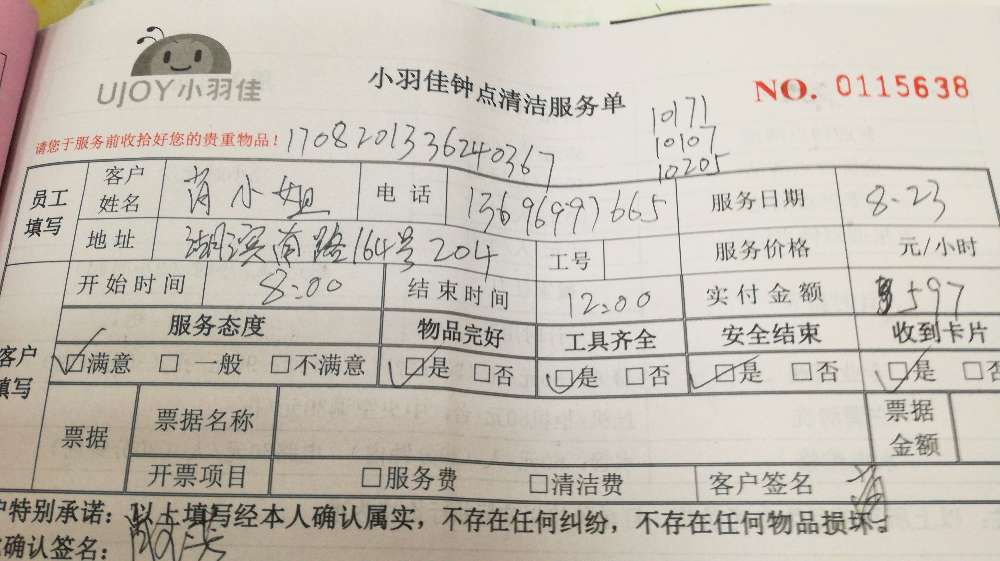 UJOY小羽佳
小羽佳钟点清洁服务单
NO. 0115638
请您于服务前收拾好您的贵重物品！
17082013336240367
10171
10107
10205
员工填写 客户姓名 肖小姐 电话 13696997665 服务日期 8.23
地址 湖滨南路164号204 工号 服务价格 元/小时
开始时间 8:00 结束时间 12:00 实付金额 597
服务态度 物品完好 工具齐全 安全结束 收到卡片
客户填写 ☑满意 □一般 □不满意 ☑是 □否 ☑是 □否 ☑是 □否 ☑是 □否
票据 票据名称 票据金额
开票项目 □服务费 □清洁费 客户签名 肖
户特别承诺：以上填写经本人确认属实，不存在任何纠纷，不存在任何物品损坏。
确认签名：